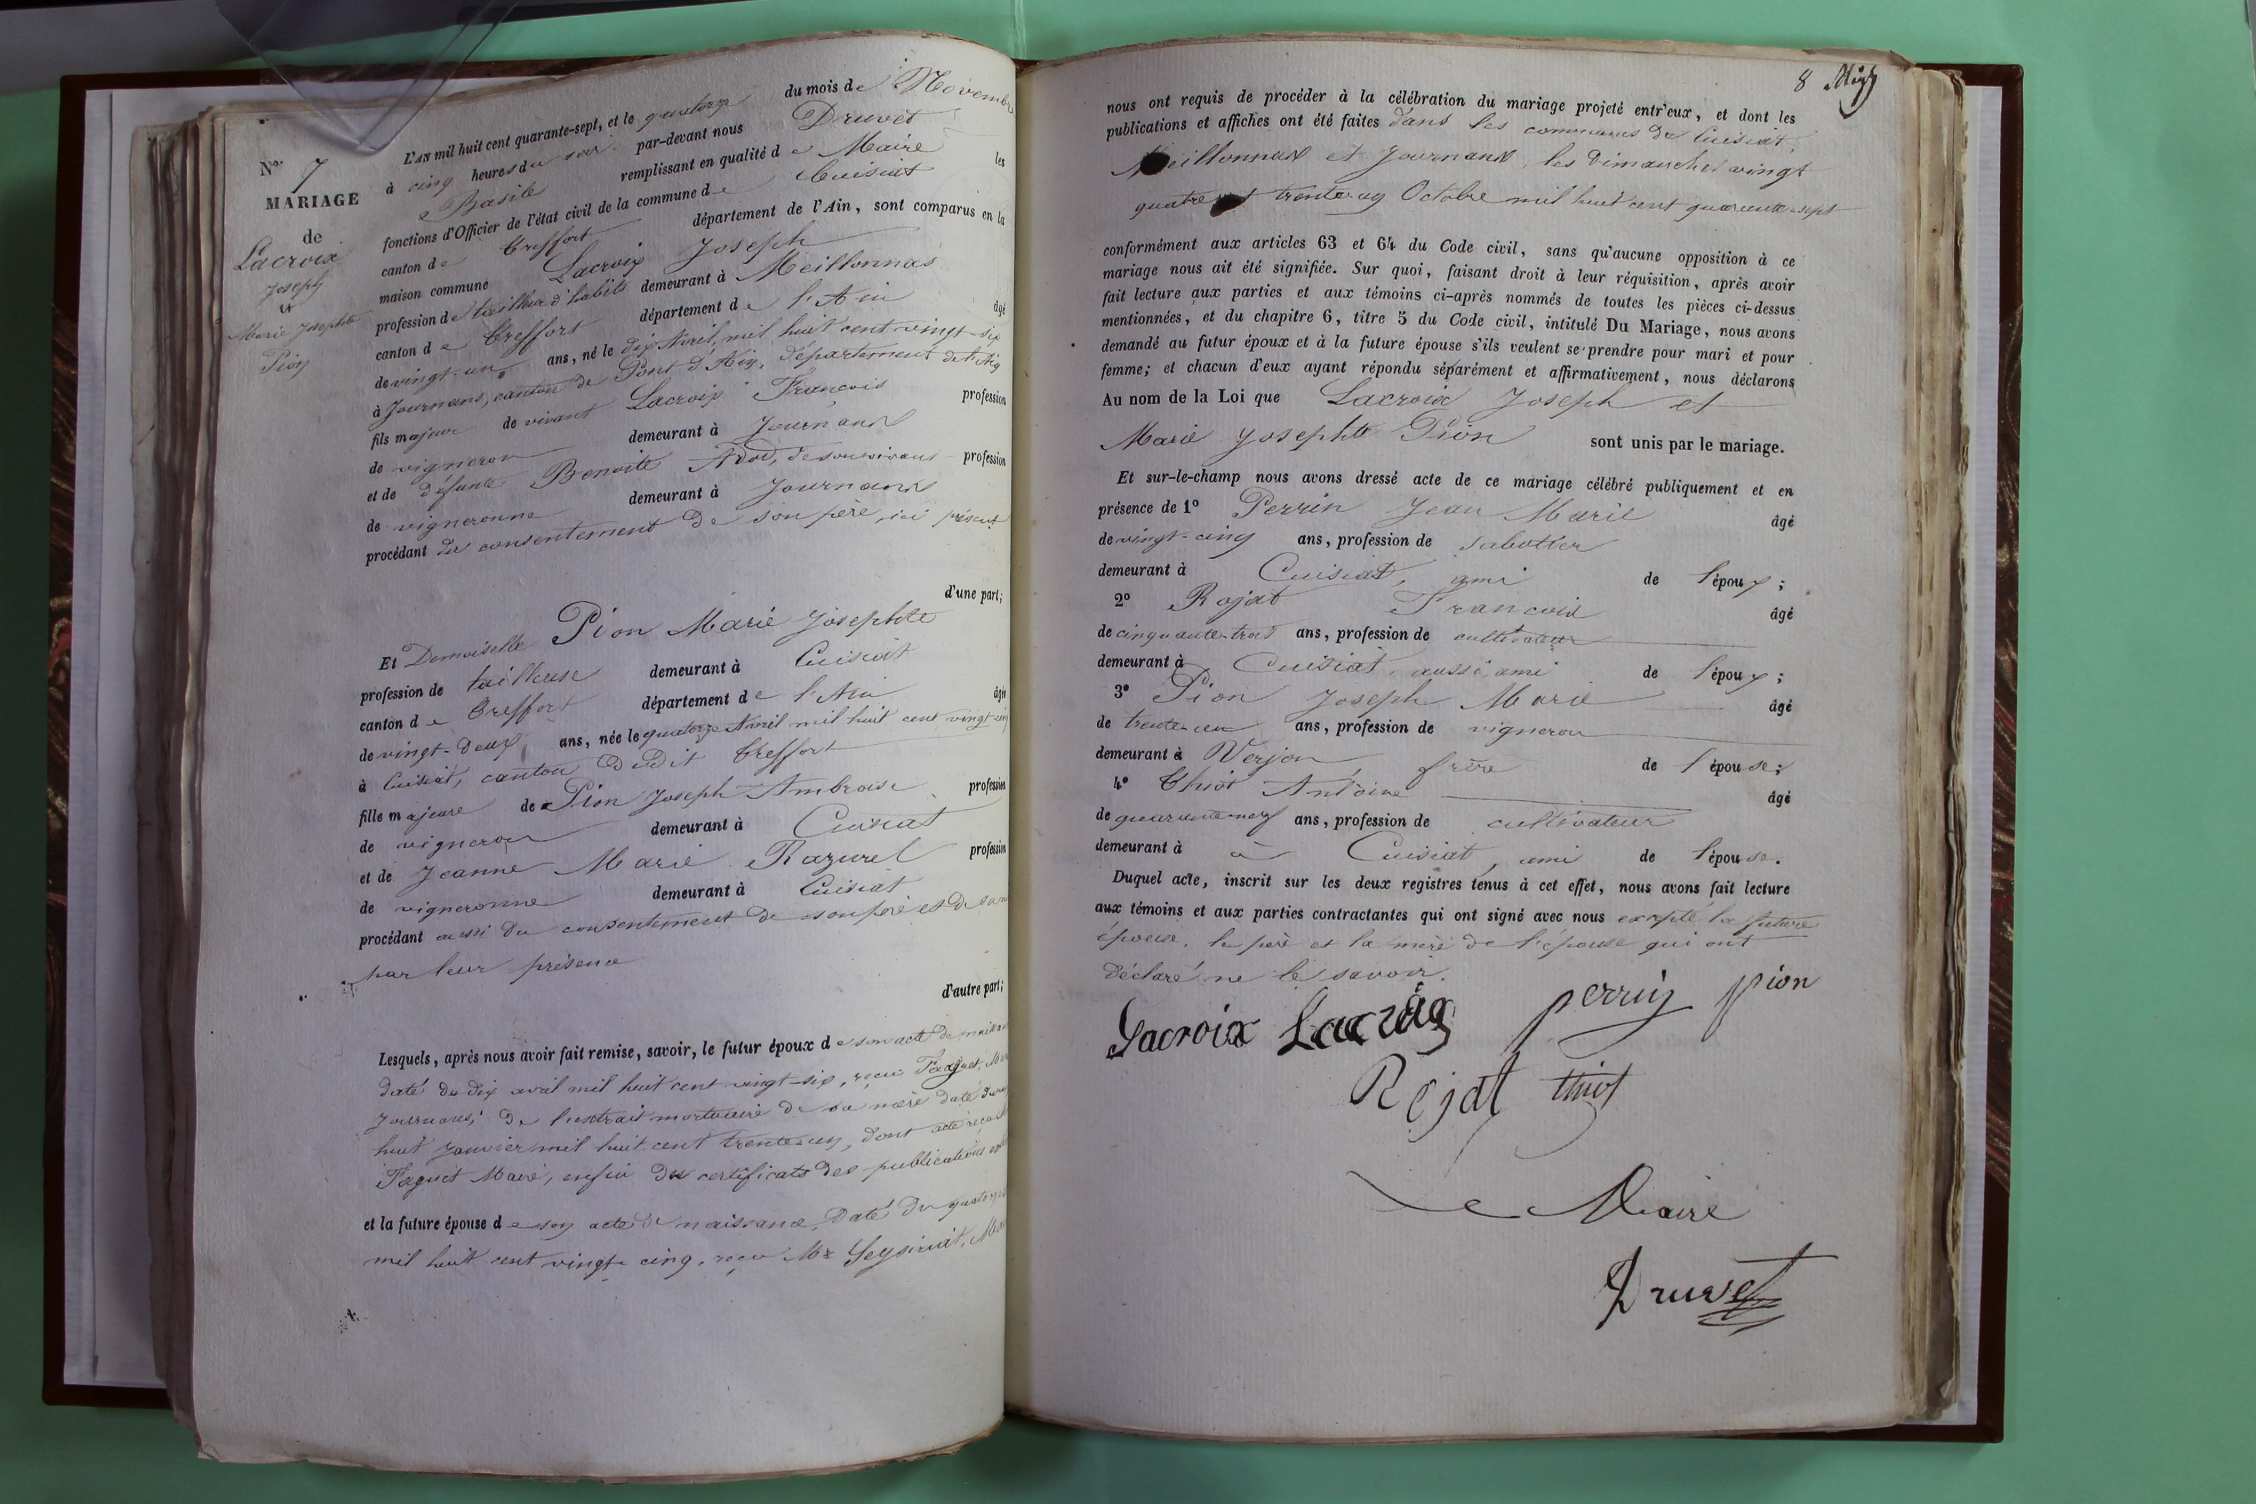 No. 7
MARIAGE
de
Lacroix
Joseph
et
Marie Josephte
Pion
L'AN mil huit cent quarante-sept, et le quatorze du mois de Novembre
à cinq heures du soir par-devant nous Druvet
Basile remplissant en qualité de Maire les
fonctions d'Officier de l'état civil de la commune de Cuisiat
canton de Treffort département de l'Ain, sont comparus en la
maison commune Lacroix Joseph
profession de tailleur d'habits demeurant à Meillonnas
canton de Treffort département de l'Ain âgé
de vingt-un ans, né le dix Avril mil huit cent vingt-six
à Journans, canton de Pont d'Ain, département de l'Ain
fils majeur de vivant Lacroix François profession
de vigneron demeurant à Journans
et de défunte Benoite profession
de vigneronne demeurant à Journans
procédant du consentement de son père, ici présent
d'une part;
Et Demoiselle Pion Marie Josephte
profession de tailleuse demeurant à Cuisiat
canton de Treffort département de l'Ain âgée
de vingt-deux ans, née le quatorze Avril mil huit cent vingt-cinq
à Cuisiat, canton dudit Treffort
fille majeure de Pion Joseph Ambroise profession
de vigneron demeurant à Cuisiat
et de Jeanne Marie Razurel profession
de vigneronne demeurant à Cuisiat
procédant aussi du consentement de son père et de sa
par leur présence
d'autre part;
Lesquels, après nous avoir fait remise, savoir, le futur époux de son acte de
daté du dix avril mil huit cent vingt-six, reçu Faguet,
Journans; de l'extrait mortuaire de sa mère daté du
huit Janvier mil huit cent trente-un, dont acte reçu
Faguet Maire, enfin des certificats des publications
et la future épouse de son acte de naissance, daté du
mil huit cent vingt-cinq, reçu Mr
8
nous ont requis de procéder à la célébration du mariage projeté entr'eux, et dont les
publications et affiches ont été faites dans les communes de Cuisiat,
Meillonnas et Journans, les dimanches vingt
quatre et trente-un Octobre mil huit cent quarante-sept
conformément aux articles 63 et 64 du Code civil, sans qu'aucune opposition à ce
mariage nous ait été signifiée. Sur quoi, faisant droit à leur réquisition, après avoir
fait lecture aux parties et aux témoins ci-après nommés de toutes les pièces ci-dessus
mentionnées, et du chapitre 6, titre 5 du Code civil, intitulé Du Mariage, nous avons
demandé au futur époux et à la future épouse s'ils veulent se prendre pour mari et pour
femme; et chacun d'eux ayant répondu séparément et affirmativement, nous déclarons
Au nom de la Loi que Lacroix Joseph et
Marie Josephte Pion sont unis par le mariage.
Et sur-le-champ nous avons dressé acte de ce mariage célébré publiquement et en
présence de 1º Perrin Jean Marie âgé
de vingt-cinq ans, profession de sabottier
demeurant à Cuisiat, ami de l'époux;
2º Rojat François âgé
de cinquante-trois ans, profession de cultivateur
demeurant à Cuisiat, aussi ami de l'époux;
3º Pion Joseph Marie âgé
de trente-un ans, profession de vigneron
demeurant à Verjon, frère de l'épouse;
4º Thiot Antoine âgé
de quarante-neuf ans, profession de cultivateur
demeurant à à Cuisiat, ami de l'épouse.
Duquel acte, inscrit sur les deux registres tenus à cet effet, nous avons fait lecture
aux témoins et aux parties contractantes qui ont signé avec nous excepté la future
épouse, le père et la mère de l'épouse qui ont
déclaré ne le savoir.
Lacroix Lacroix perrin pion
Rojat thiot
Le Maire
Druvet